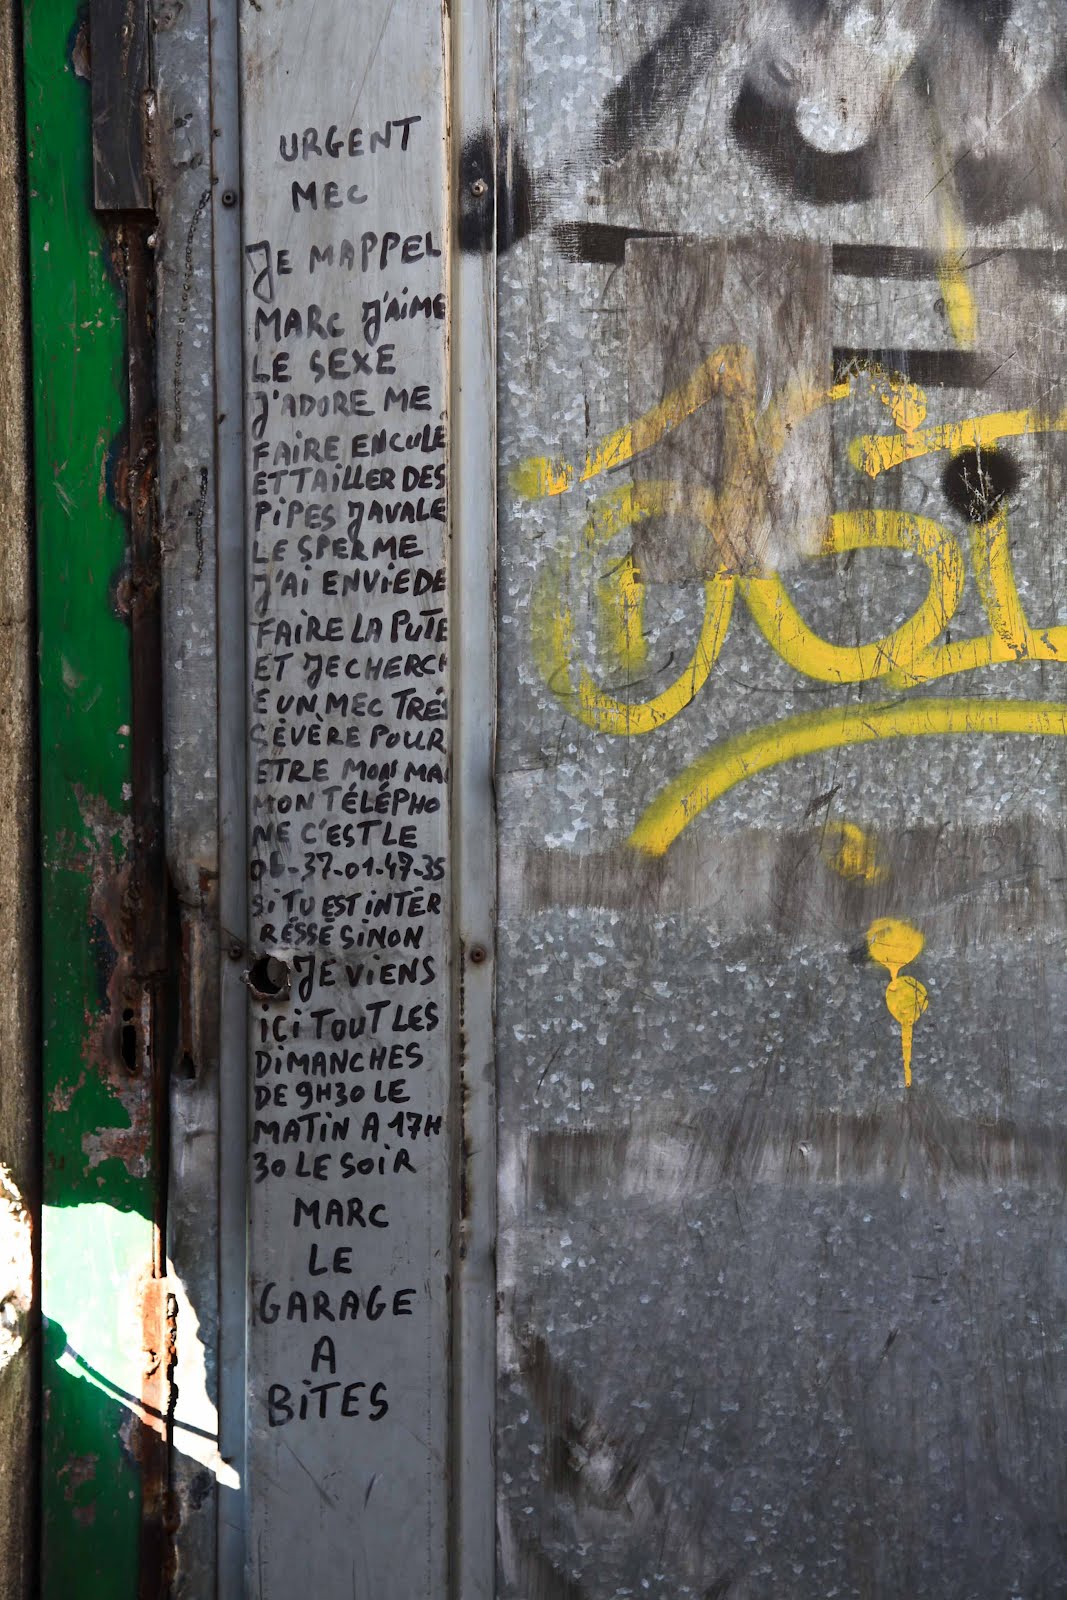 URGENT
MEC
JE MAPPEL
MARC J'AIME
LE SEXE
J'ADORE ME
FAIRE ENCULE
ET TAILLER DES
PIPES J'AVALE
LE SPERME
J'AI ENVIE DE
FAIRE LA PUTE
ET JE CHERCH
E UN MEC TRÉS
SÉVÈRE POUR
ETRE MON MA
MON TÉLÉPHO
NE C'EST LE
06-37-01-47-35
SI TU EST INTÉR
RÉSSÉ SINON
JE VIENS
ICI TOUT LES
DIMANCHES
DE 9H30 LE
MATIN A 17H
30 LE SOIR
MARC
LE
GARAGE
A
BITES